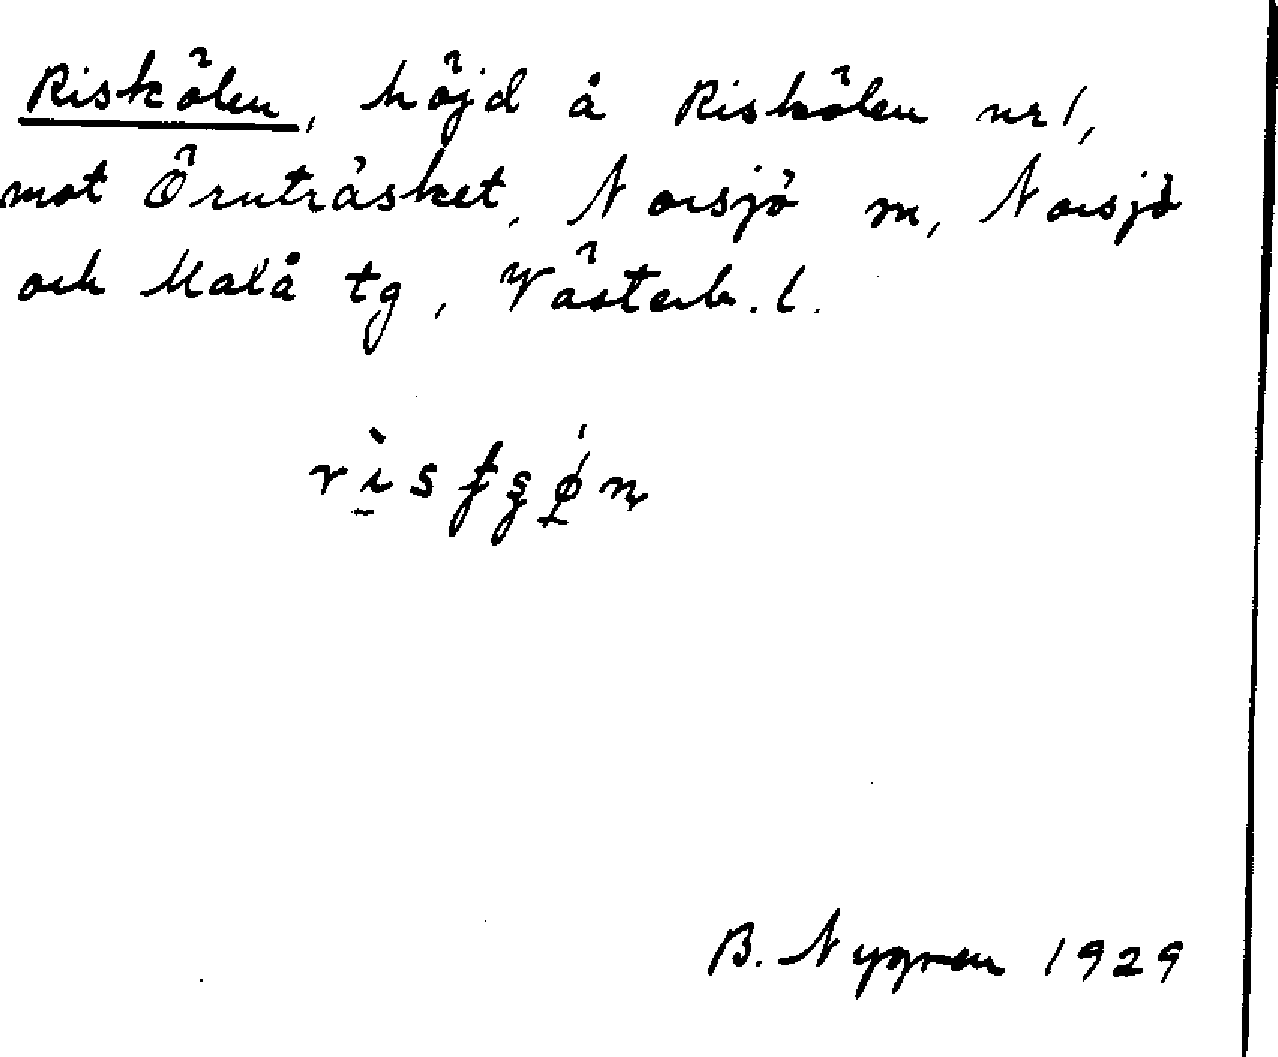 Riskölen, höjd å Riskölen nr 1,
mot Örnträsket, Norsjö m, Norsjö
och Malå tg, Västerb. l.
B. Nygren 1929